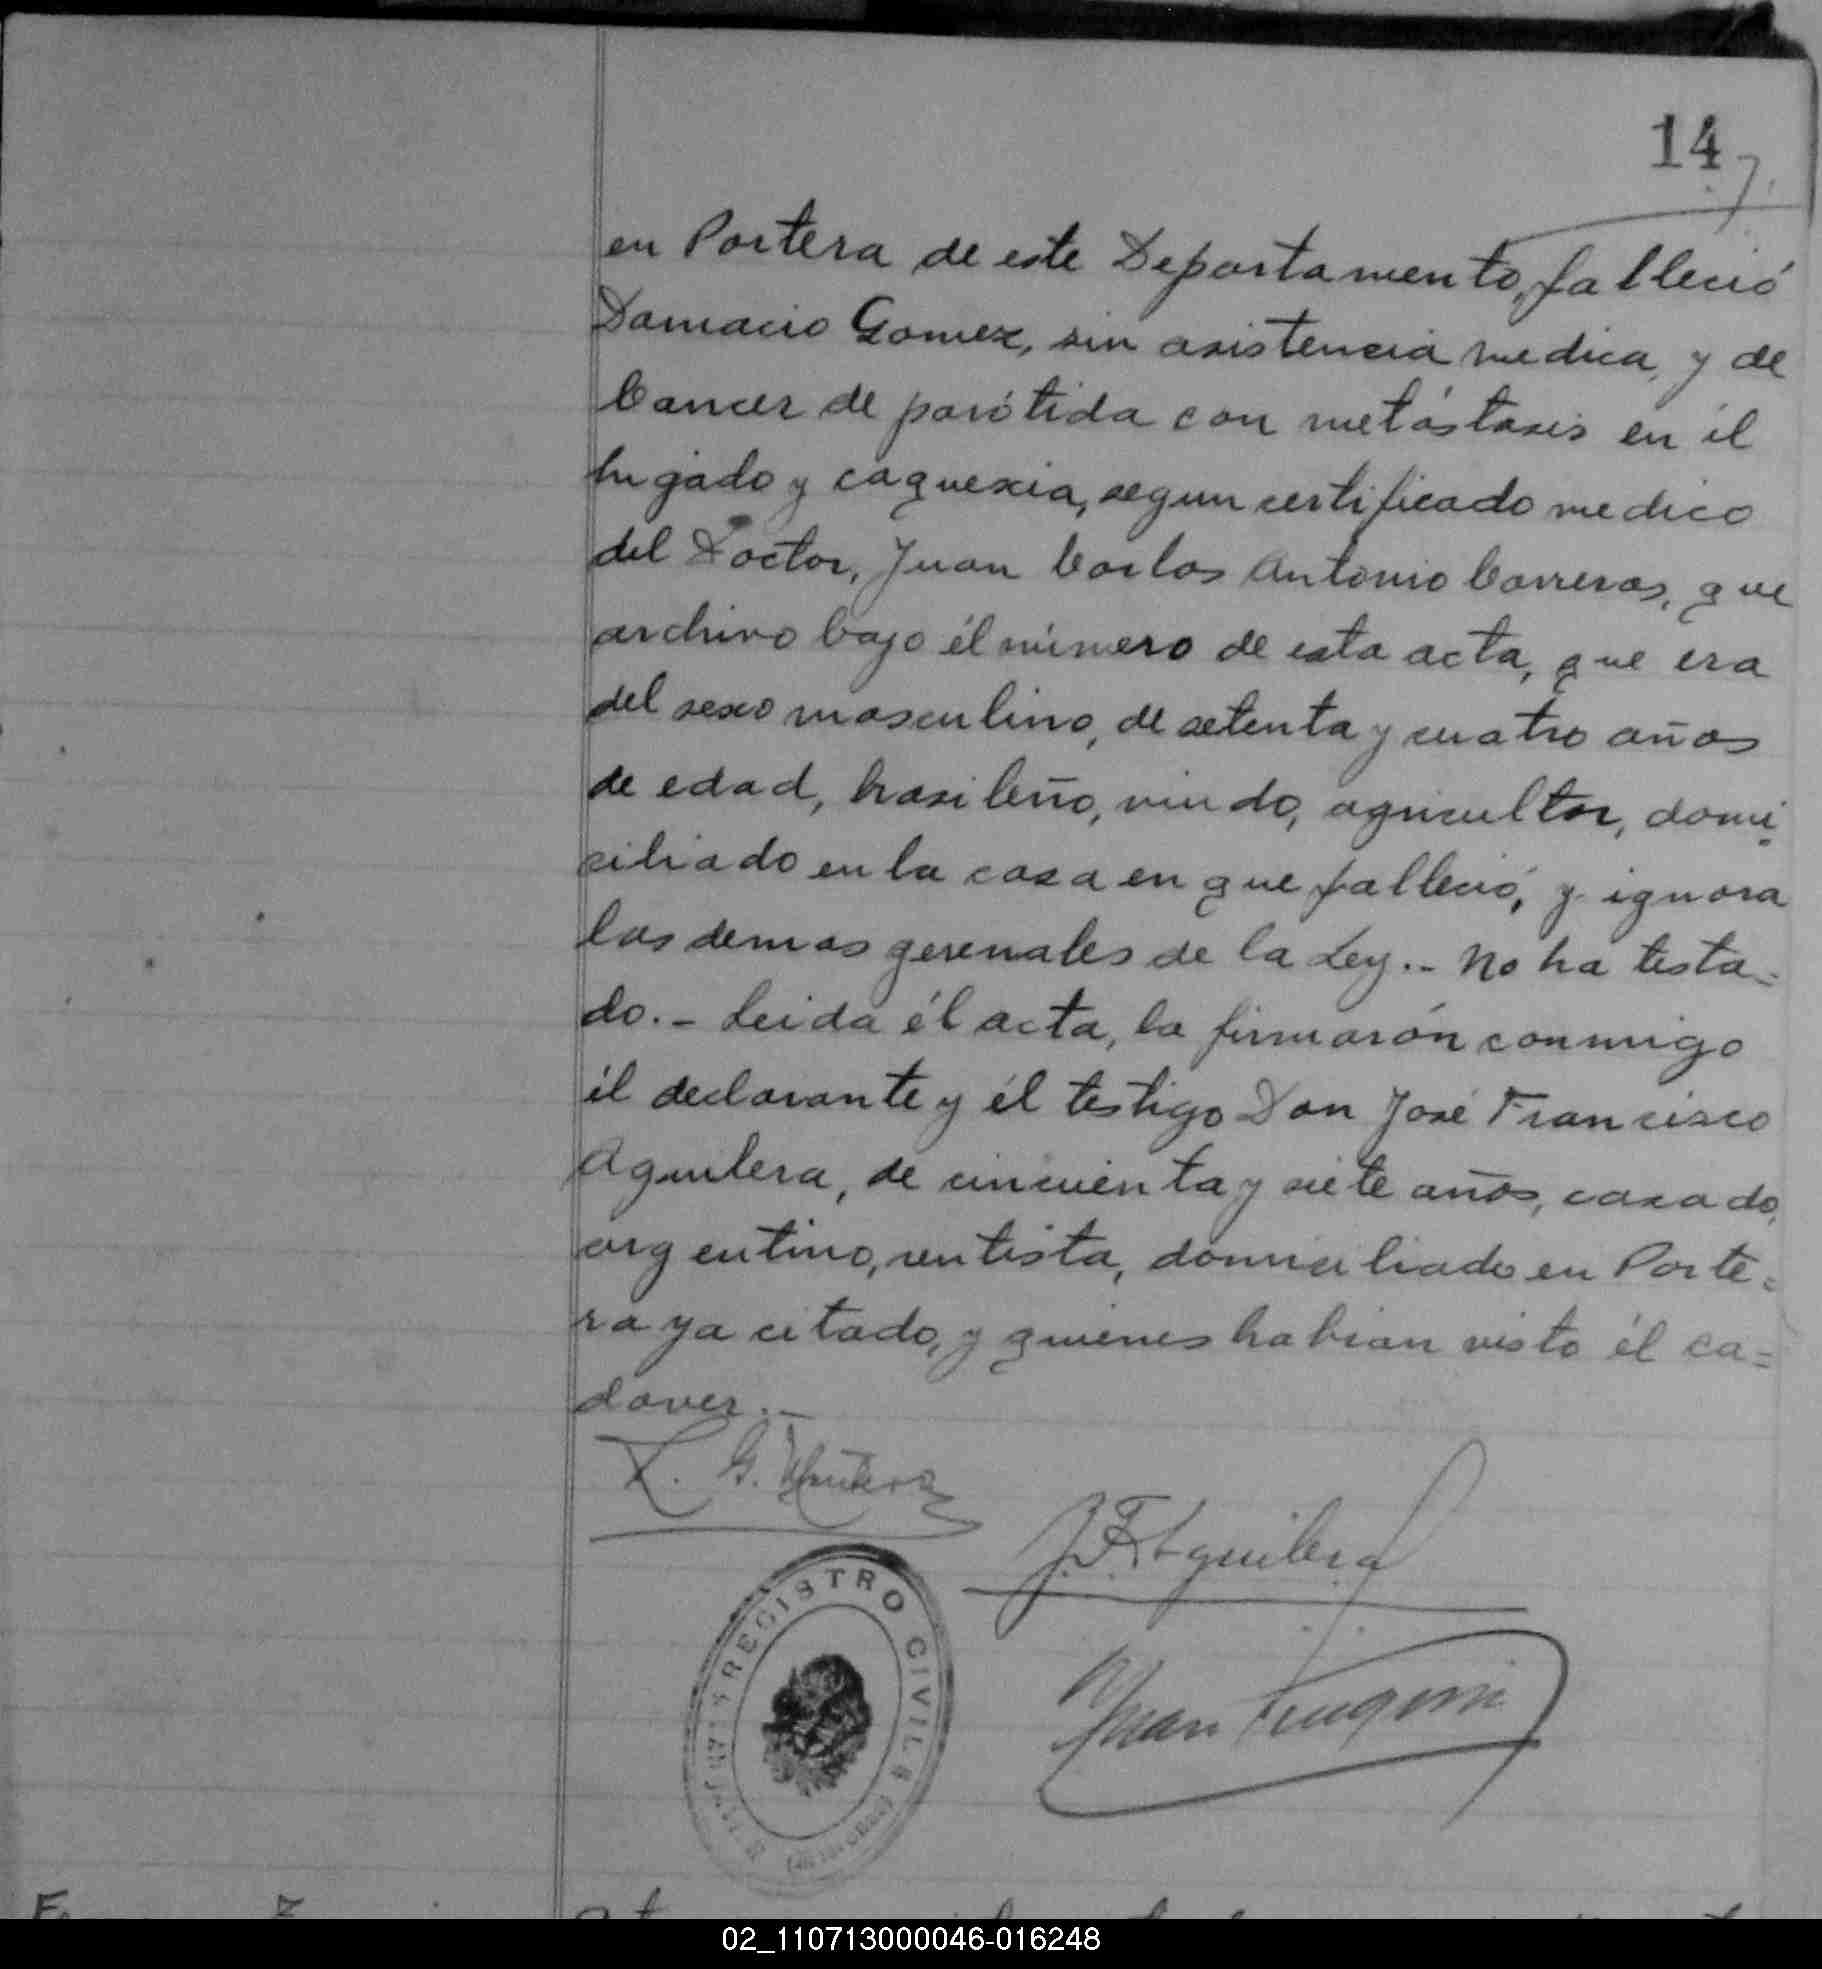 14
en Portera de este Departamento, falleció
Damacio Gomez, sin asistencia medica, y de
Cancer de parótida con metástasis en él
higado y caquexia, segun certificado medico
del Doctor, Juan Carlos Antonio Carreras, que
archivo bajo él número de esta acta, que era
del sexo masculino, de setenta y cuatro años
de edad, brasileño, viudo, agricultor, domi-
ciliado en la casa en que falleció, y ignora
las demas generales de la Ley.- No ha testa=
do.- Leida él acta, la firmarón conmigo
él declarante y él testigo Don José Francisco
Aguilera, de cincuenta y siete años, casado,
argentino, rentista, domiciliado en Porte=
ra ya citado, y quienes habian visto él ca=
daver.-
L. G.
J. F. Aguilera
REGISTRO CIVIL
Juan
02_110713000046-016248